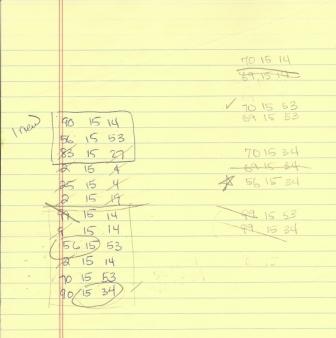 1 new
90 15 14
56 15 53
83 15 27
2 15 4
25 15 4
2 15 19
15 14
15 14
56 15 53
2 15 14
70 15 53
90 15 34
70 15 14
89 15 14
70 15 53
69 15 53
70 15 34
69 15 34
56 15 34
89 15 53
89 15 34